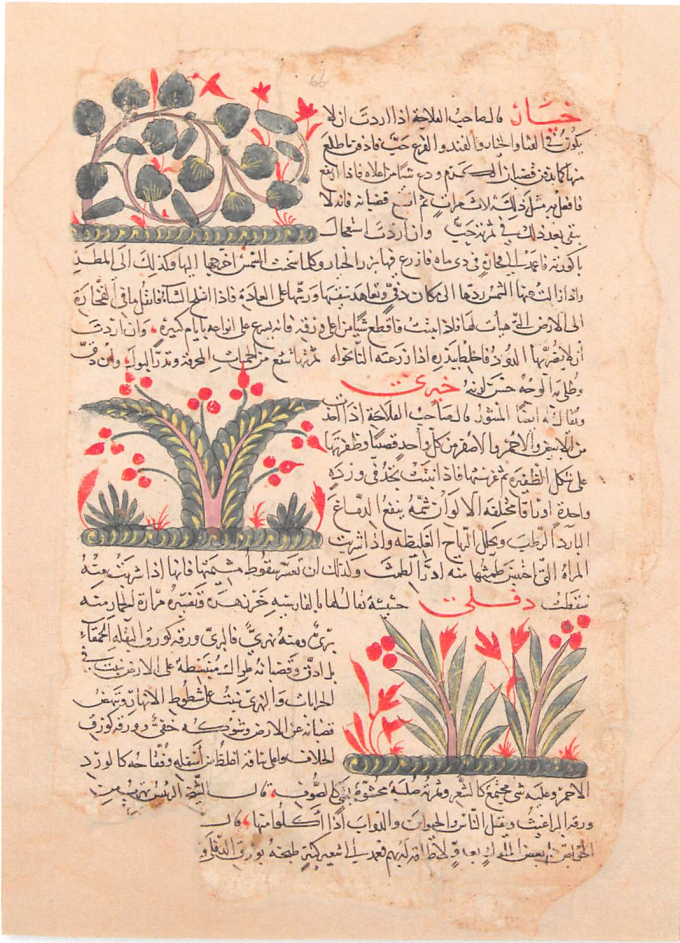 خيار قال صاحب الفلاحة اذا اردت ان لا
يكون في القثا والخيار والقند والقرع حب فاذفن ما طلع
منها كما يدفن قضبان الكرم ودع شيا من اعلاه فاذا ارتفع
فافعل به مثل ذلك ثلاث مرات ثم اقطع قضبانه فانه لا
يبقى بعد ذلك في ثمرته حب وان اردت استعمال
باكورته فاعمد الى في دي ماه فازرع فيها بزر الخيار وكلما سخنت الشمس اخرجها اليها وكذلك الى المطر
واذا زالت عنها الشمس ردها الى مكان دفي وتعاهد سقيها ورشها على العادة فاذا انسلخ الشتا فانقل ما في الفخارة
الى الارض التي هيات لها فاذا نبتت فاقطع شيا من اعلى ورقه فانه يسرع على انواعه بايام كثيرة وان اردت
ان لا يضر بها الدود فاخلط بذره اذا زرعته النانخواه ثمرتها تنفع من الحميات المحرقة وتدر البول وان دق
وطلي به الوجه حسن لونه خيري
ويقال له ايضا المنثور قال صاحب الفلاحة اذا اخذ
من الابيض والاحمر والاصفر من كل واحد قضيبا وظفرتها
على شكل الظفيرة ثم غرستها فاذا نبتت تجد في وردة
واحدة اوراقا مختلفة الالوان شمه ينفع الدماغ
البارد الرطب ويحلل الرياح الغليظة واذا شربت
المراة التي احتبس طمثها منه ادر الطمث وكذلك ان تعسر سقوط مشيمتها فانها اذا شربت منه
سقطت دفلى حشيشة يقال لها بالفارسية خرزهره وتفسيره مرارة الحمار منه
بري ومنه نهري فالبري ورقه كورق البقلة الحمقاء
بل ادق وقضبانه طوال منبسطة على الارض ينبت في
الخرابات والنهري ينبت على شطوط الانهار وتنهض
قضبانه عن الارض وشوكه خفي ورقه كورق
الخلاف واعلى ساقه اغلظ من اسفله وفقاحه كالورد
الاحمر وعليه شي مجتمع كالشعر وثمرته صلبة محشوة شي كالصوف قال الشيخ الرئيس
ورقه البراغيث ويقتل الناس والحيوان والدواب اذا اكلوا منها قال
بعض الملوك فعمد الى شعير طبخه بورق الدفلى و